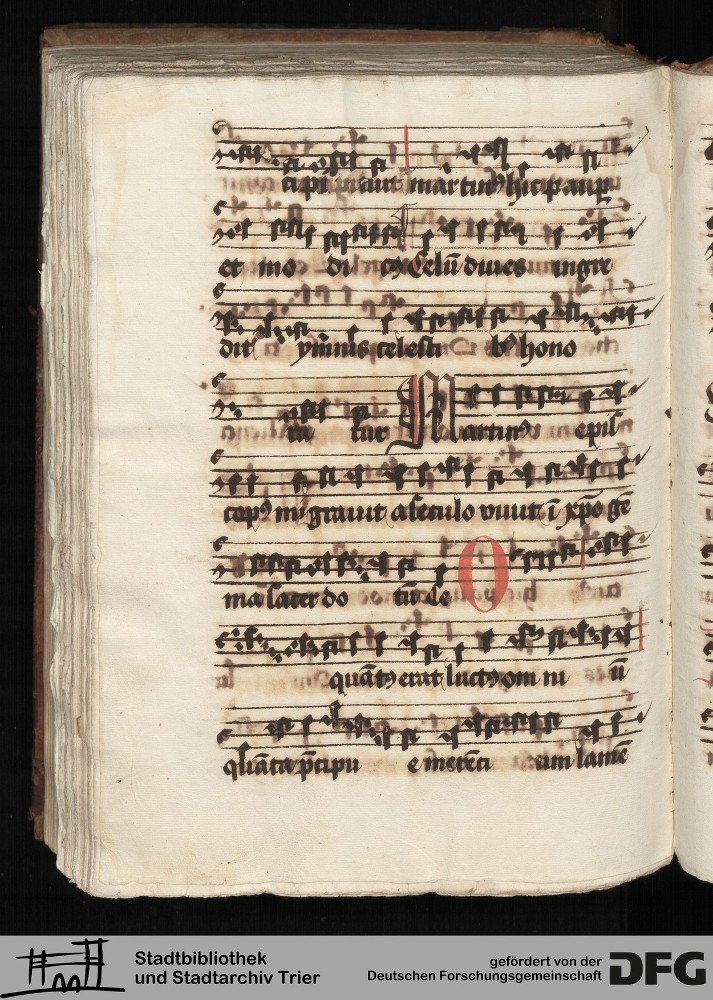 cipi aut martin9 hic paup
et mo di c9 Celū diues ingre
dit ymnis celesti b9 hono
ra tur Martin9 epis
cop9 migrauit a seculo viuit ī xp̄o gē
ma sacerdo tū Ce O
quāt9 erat luct9 om ni ū
quāta p̄cipu e merēci um lamē
Stadtbibliothek
und Stadtarchiv Trier
gefördert von der
Deutschen Forschungsgemeinschaft
DFG